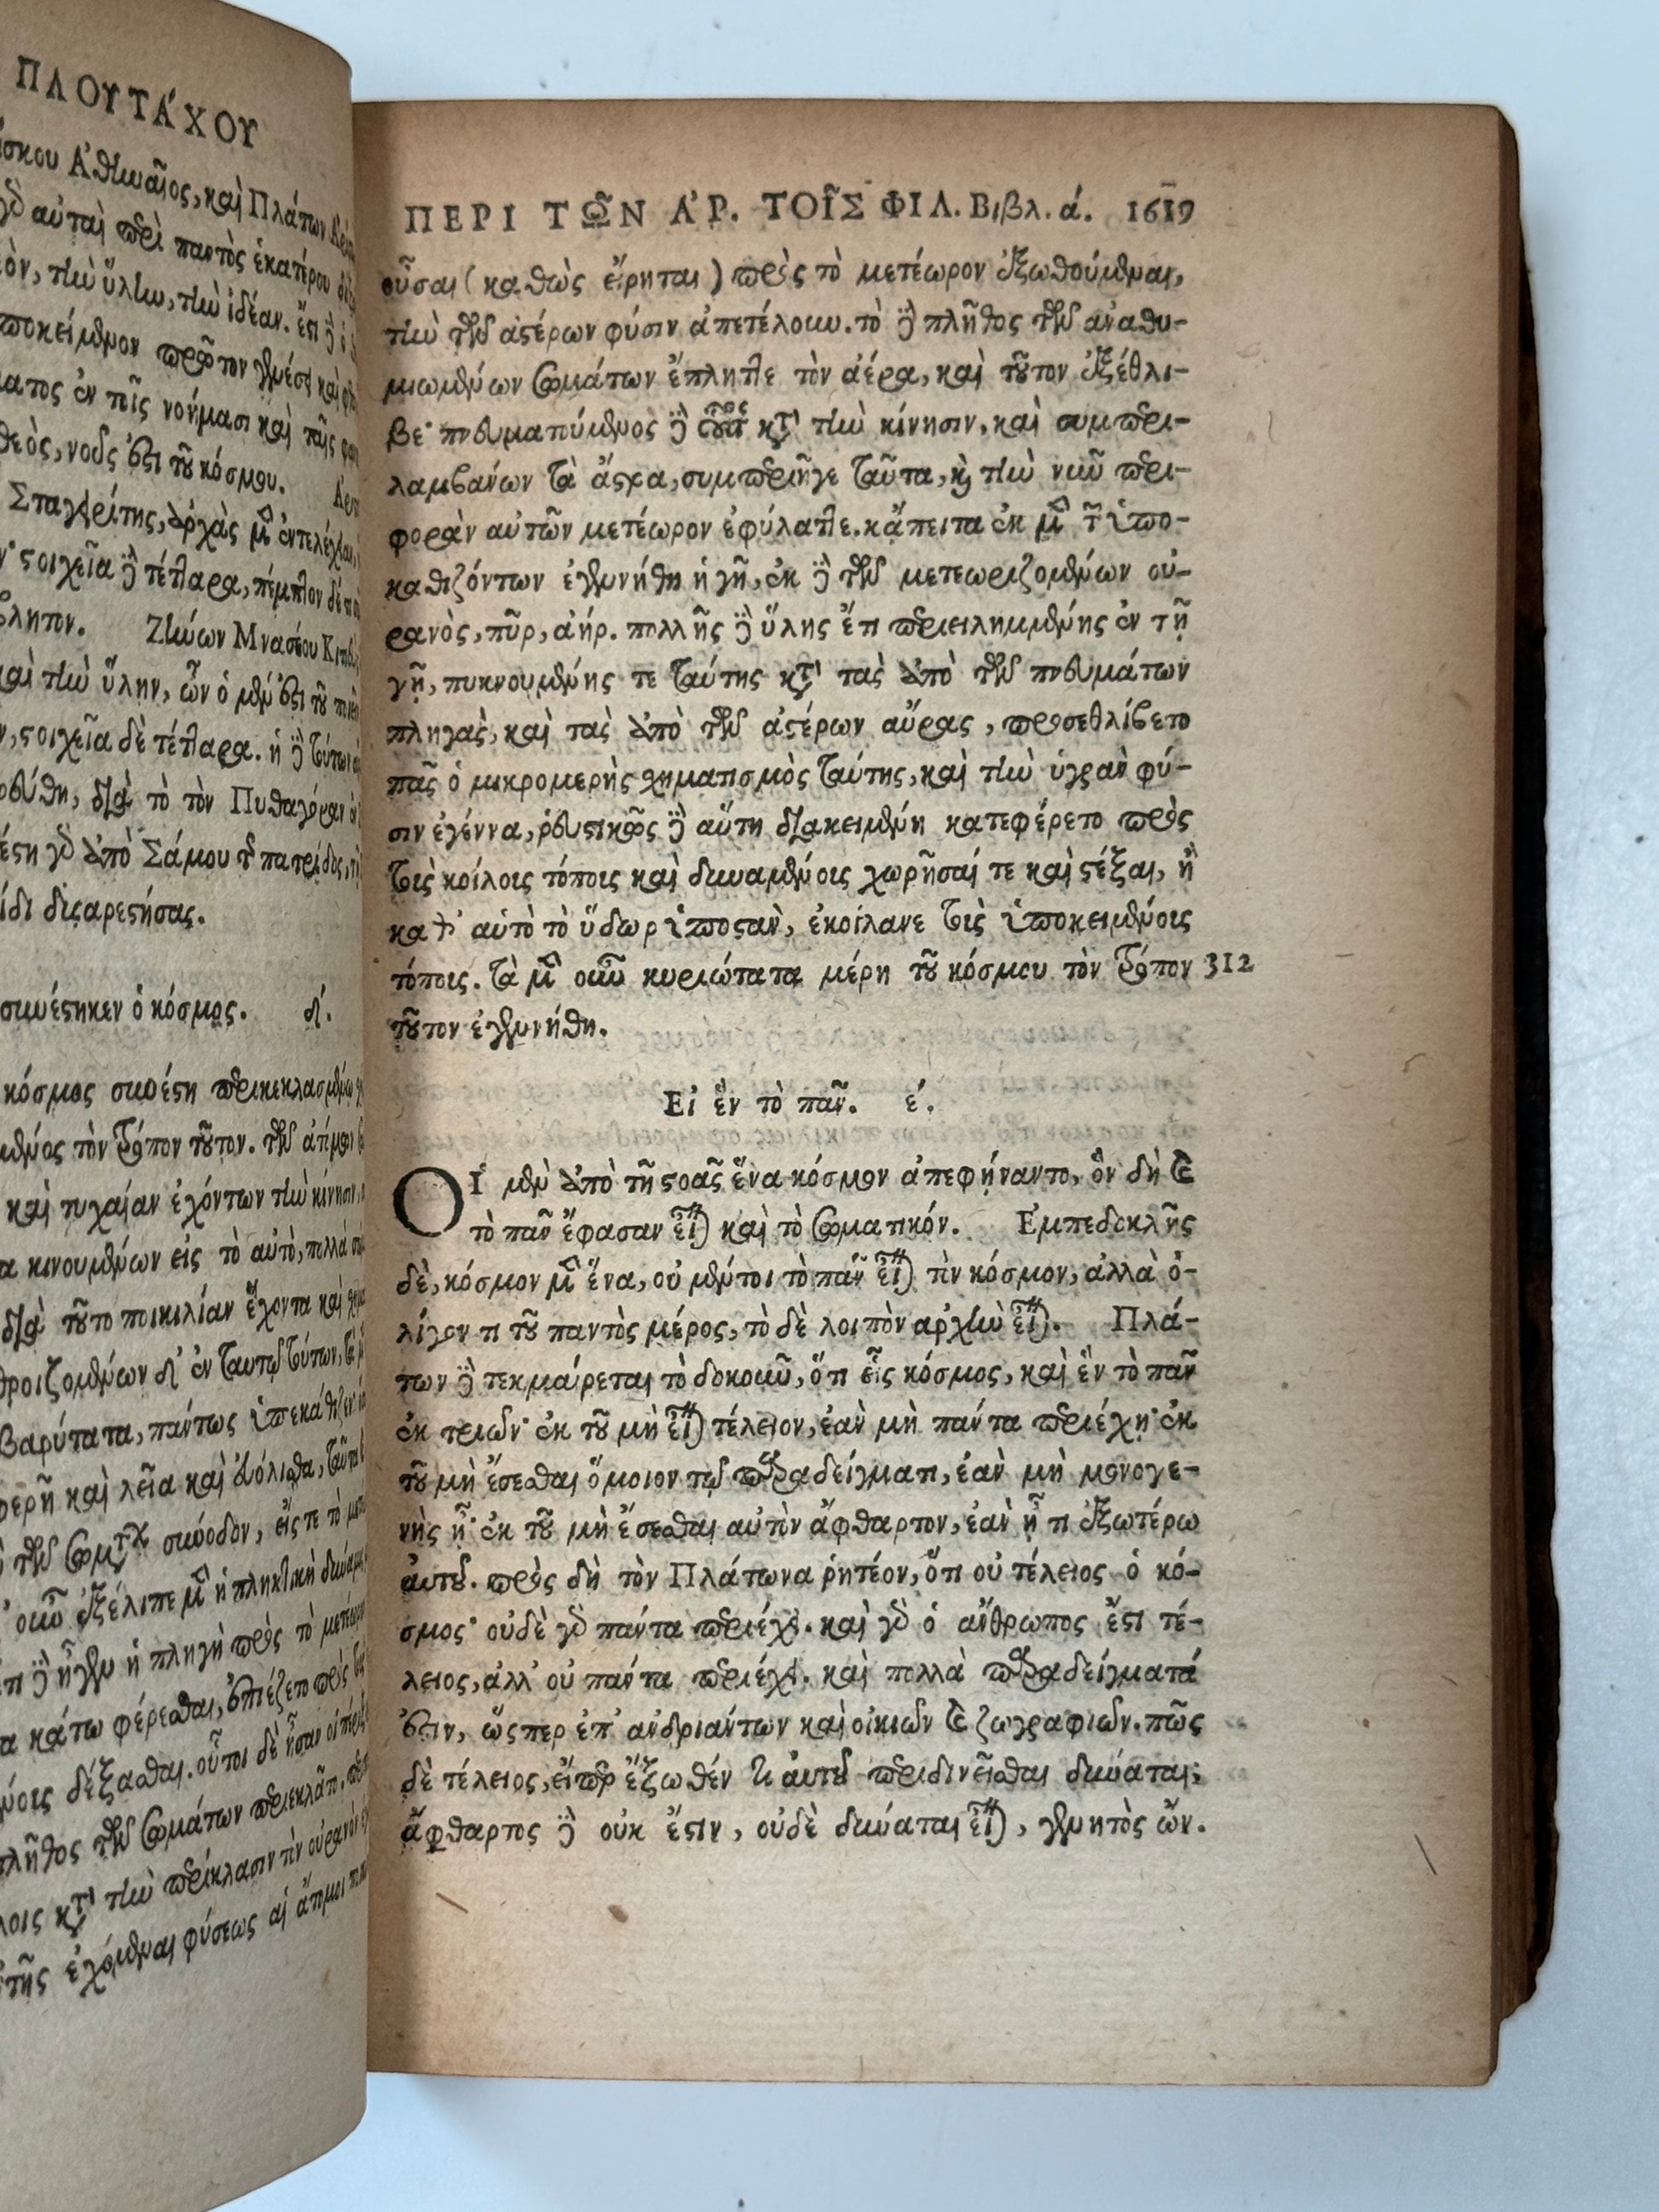 ΠΛΟΥΤΑ΄ΧΟΥ
Ἀθηναῖος, καὶ Πλάτων
αὗται περὶ παντὸς ἑκατέρου
τὴν ὕλην, τὴν ἰδέαν. ἔστι δὲ
πρῶτον γενέσει καὶ
ἐν τοῖς νοήμασι καὶ ταῖς
θεὸς, νοῦς ἐστι τοῦ κόσμου.
Σταγειρίτης, ἀρχὰς μὲν ἐντελέχειαν,
στοιχεῖα δὲ τέτταρα, πέμπτον δέ
Ζήνων Μνασέου
καὶ τὴν ὕλην, ὧν ὁ μέν ἐστι τοῦ
στοιχεῖα δὲ τέτταρα. ἡ δὲ τούτων
διὰ τὸ τὸν Πυθαγόραν
γὰρ ἀπὸ Σάμου τῆς πατρίδος,
δυσαρεστήσας.
συνέστηκεν ὁ κόσμος. δ΄.
κόσμος συνέστη περικεκλασμένῳ
τὸν τρόπον τοῦτον. τῶν ἀτόμων
καὶ τυχαίαν ἐχόντων τὴν κίνησιν,
κινουμένων εἰς τὸ αὐτὸ, πολλὰ
διὰ τοῦτο ποικιλίαν ἔχοντα καὶ
δ' ἐν ταυτῷ τούτων,
βαρύτατα, πάντως ὑπεκάθιζεν
καὶ λεῖα καὶ εὐόλισθα, ταῦτα
τῶν σωμάτων σύνοδον, εἴς τε τὸ
οὖν ἐξέλιπε μὲν ἡ πληκτικὴ δύναμις
δὲ ἦγεν ἡ πληγὴ πρὸς τὸ μετέωρον
κάτω φέρεσθαι, ἐπιέζετο πρὸς
δέξασθαι. οὗτοι δὲ ἦσαν οἱ πέριξ
πλῆθος τῶν σωμάτων περιεκλᾶτο,
κατὰ τὴν περίκλασιν τὸν οὐρανὸν
ἐχόμεναι φύσεως αἱ ἄτομοι
ΠΕΡΙ ΤΩ͂Ν Ἀ΄Ρ. ΤΟΙ͂Σ ΦΙΛ. Βιβλ. ά. 1619
οὖσαι (καθὼς εἴρηται) πρὸς τὸ μετέωρον ἐξωθούμεναι,
τὴν τῶν ἀστέρων φύσιν ἀπετέλουν. τὸ δὲ πλῆθος τῶν ἀναθυ-
μιωμένων σωμάτων ἔπληττε τὸν ἀέρα, καὶ τοῦτον ἐξέθλι-
βε· πνευματούμενος δὲ οὗτος κατὰ τὴν κίνησιν, καὶ συμπερι-
λαμβάνων τὰ ἄστρα, συμπεριῆγε ταῦτα, καὶ τὴν νῦν περι-
φορὰν αὐτῶν μετέωρον ἐφύλαττε. κἄπειτα ἐκ μὲν τῶν ὑπο-
καθιζόντων ἐγενήθη ἡ γῆ, ἐκ δὲ τῶν μετεωριζομένων οὐ-
ρανὸς, πῦρ, ἀήρ. πολλῆς δὲ ὕλης ἔτι περιειλημμένης ἐν τῇ
γῇ, πυκνουμένης τε ταύτης κατὰ τὰς ἀπὸ τῶν πνευμάτων
πληγὰς, καὶ τὰς ἀπὸ τῶν ἀστέρων αὔρας, προσεθλίβετο
πᾶς ὁ μικρομερὴς σχηματισμὸς ταύτης, καὶ τὴν ὑγρὰν φύ-
σιν ἐγέννα, ῥευστικῶς δὲ αὕτη διακειμένη κατεφέρετο πρὸς
τοὺς κοίλους τόπους καὶ δυναμένους χωρῆσαί τε καὶ στέξαι, ἢ
καθ' αὑτὸ τὸ ὕδωρ ὑποστὰν, ἐκοίλανε τοὺς ὑποκειμένους
τόπους. τὰ μὲν οὖν κυριώτατα μέρη τοῦ κόσμου τὸν τρόπον 312
τοῦτον ἐγενήθη.
Εἰ ἓν τὸ πᾶν. έ.
ΟἹ μὲν ἀπὸ τῆς στοᾶς ἕνα κόσμον ἀπεφήναντο, ὃν δὴ καὶ
τὸ πᾶν ἔφασαν εἶναι καὶ τὸ σωματικόν. Ἐμπεδοκλῆς
δὲ, κόσμον μὲν ἕνα, οὐ μέντοι τὸ πᾶν εἶναι τὸν κόσμον, ἀλλὰ ὀ-
λίγον τι τοῦ παντὸς μέρος, τὸ δὲ λοιπὸν ἀργὴν εἶναι. Πλά-
των δὲ τεκμαίρεται τὸ δοκοῦν, ὅτι εἷς κόσμος, καὶ ἓν τὸ πᾶν
ἐκ τριῶν· ἐκ τοῦ μὴ εἶναι τέλειον, ἐὰν μὴ πάντα περιέχῃ· ἐκ
τοῦ μὴ ἔσεσθαι ὅμοιον τῷ παραδείγματι, ἐὰν μὴ μονογε-
νὴς ᾖ· ἐκ τοῦ μὴ ἔσεσθαι αὐτὸν ἄφθαρτον, ἐὰν ᾖ τι ἐξωτέρω
αὐτοῦ. πρὸς δὴ τὸν Πλάτωνα ῥητέον, ὅτι οὐ τέλειος ὁ κό-
σμος· οὐδὲ γὰρ πάντα περιέχει. καὶ γὰρ ὁ ἄνθρωπος ἔστι τέ-
λειος, ἀλλ' οὐ πάντα περιέχει. καὶ πολλὰ παραδείγματά
ἐστιν, ὥσπερ ἐπ' ἀνδριάντων καὶ οἰκιῶν καὶ ζωγραφιῶν. πῶς
δὲ τέλειος, εἴπερ ἔξωθέν τι αὐτοῦ περιδινεῖσθαι δύναται;
ἄφθαρτος δὲ οὐκ ἔστιν, οὐδὲ δύναται εἶναι, γενητὸς ὤν.